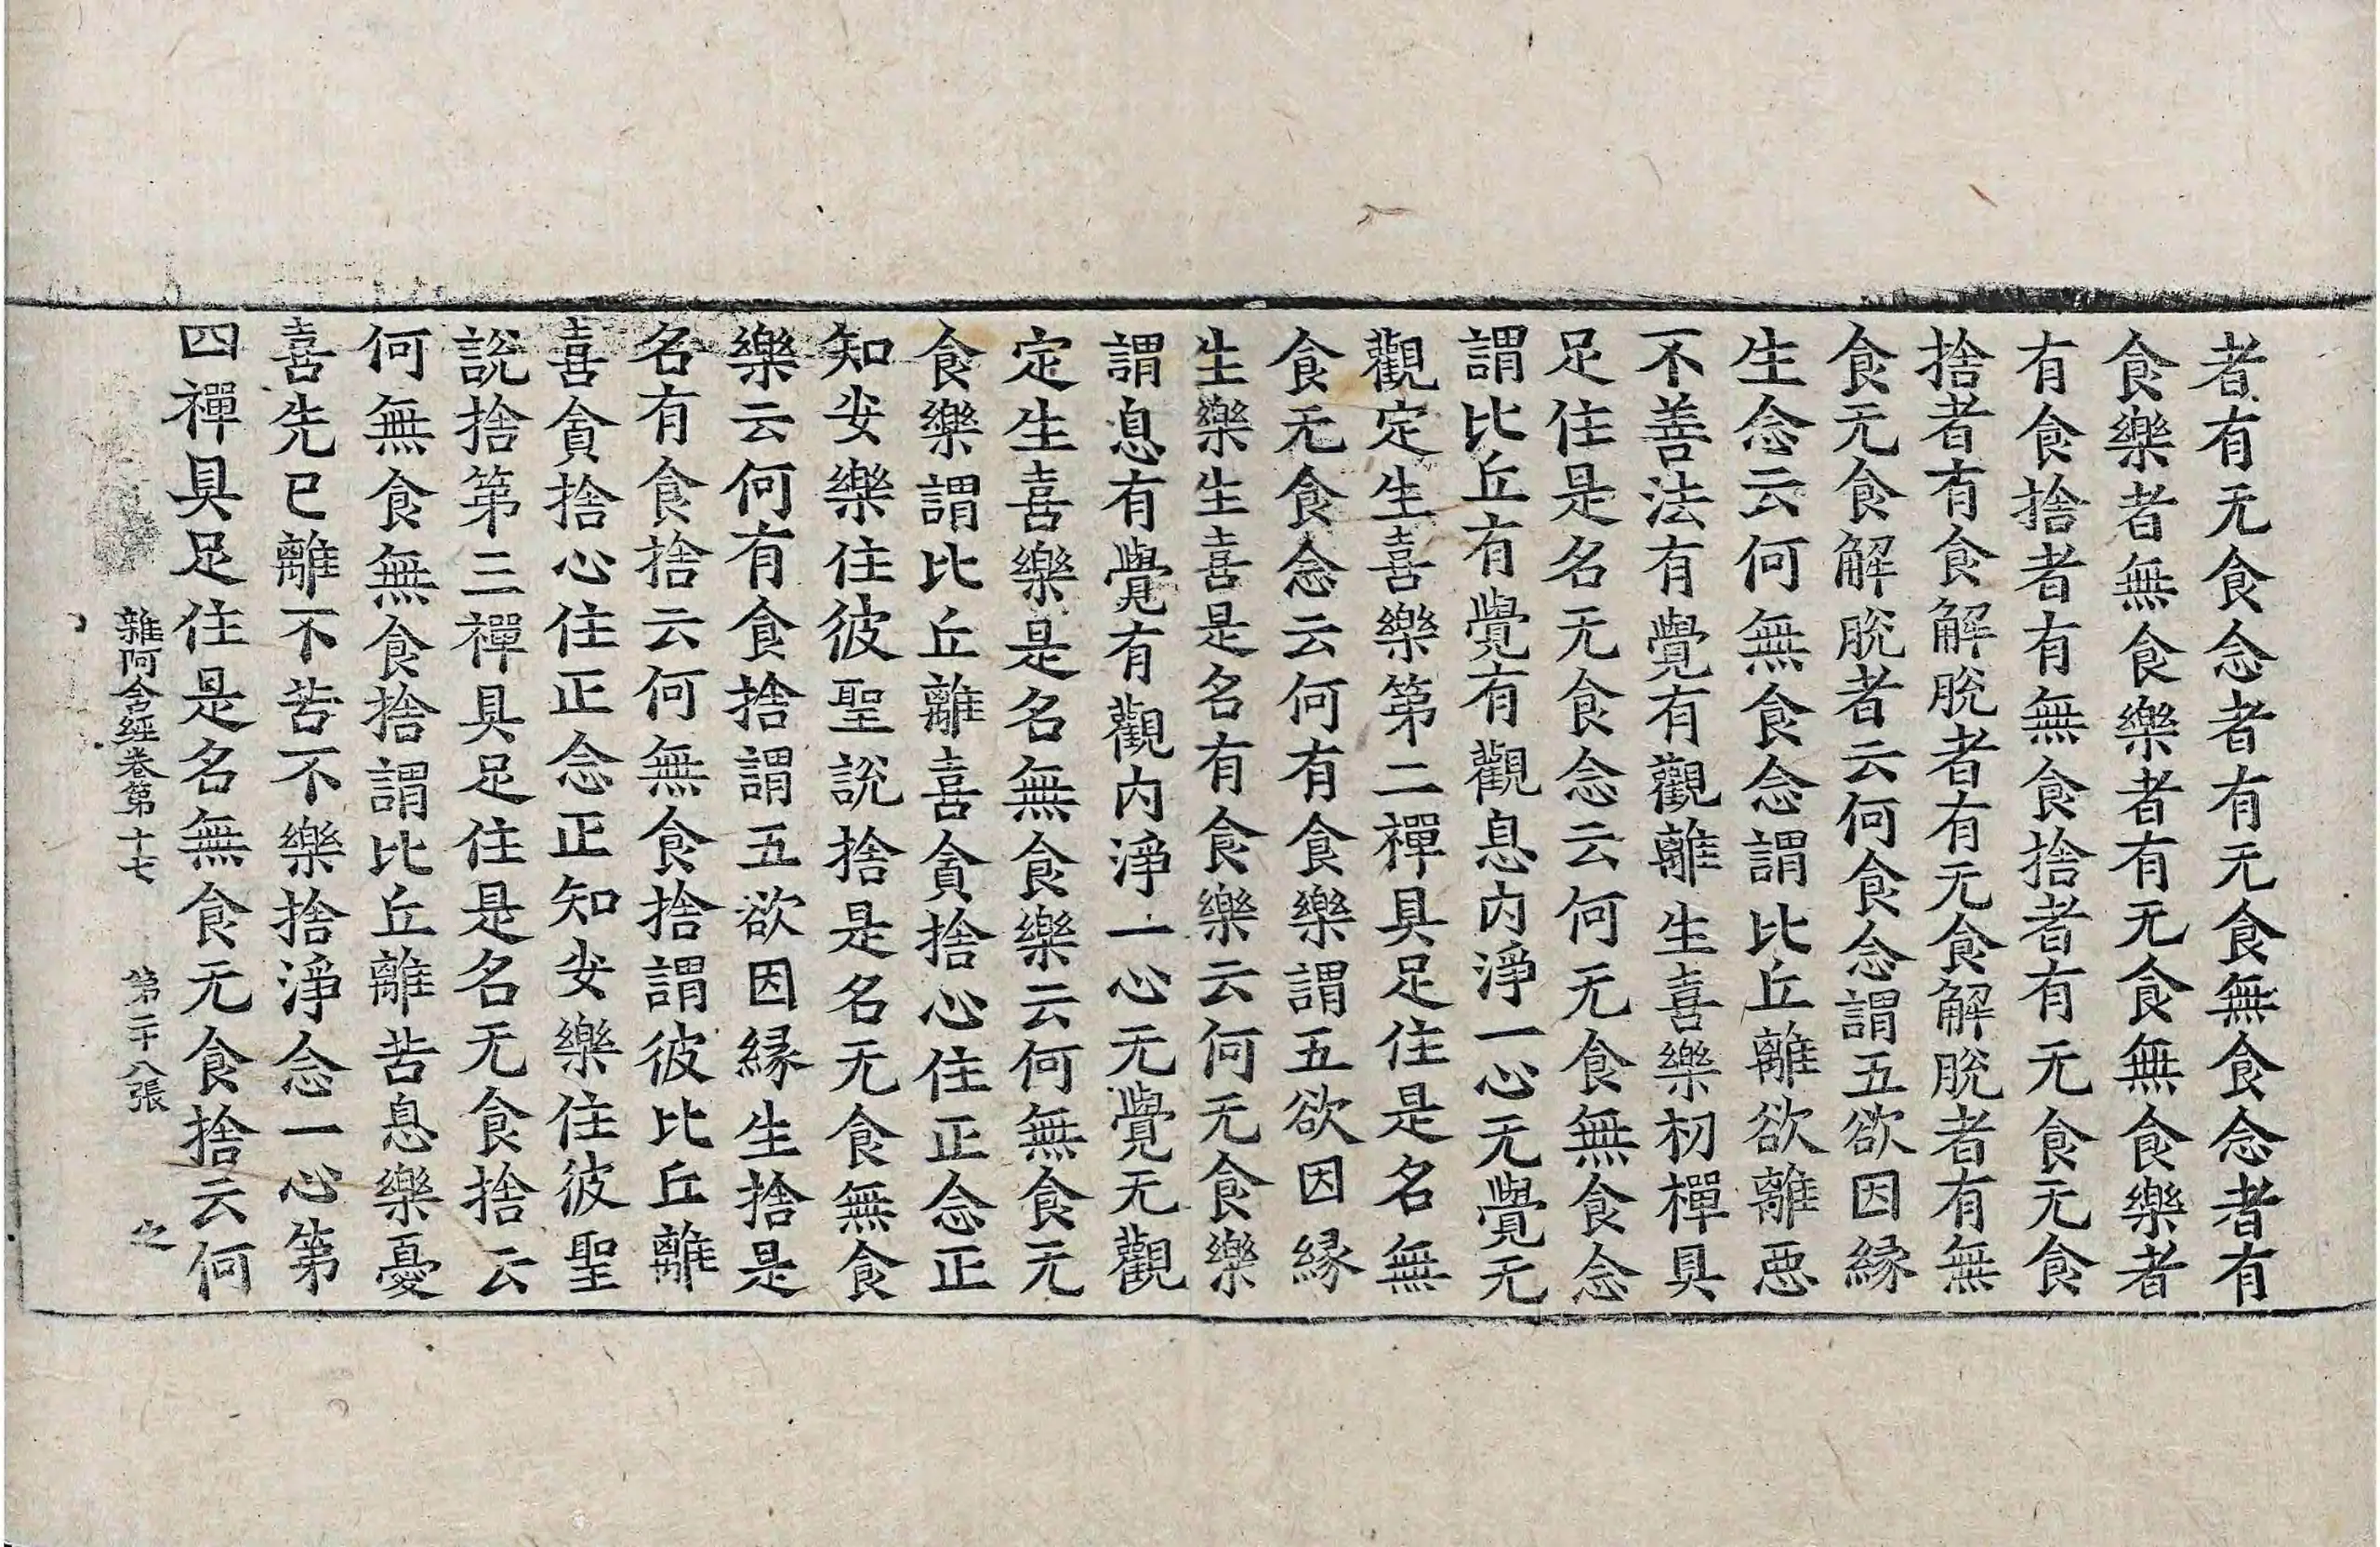 者有无食念者有无食無食念者有
食樂者無食樂者有无食無食樂者
有食捨者有無食捨者有无食无食
捨者有食解脫者有无食解脫者有無
食无食解脫者云何食念謂五欲因緣
生念云何無食念謂比丘離欲離悪
不善法有覺有觀離生喜樂初禪具
足住是名无食念云何无食無食念
謂比丘有覺有觀息内淨一心无覺无
觀定生喜樂第二禪具足住是名無
食无食念云何有食樂謂五欲因縁
生樂生喜是名有食樂云何无食樂
謂息有覺有觀内淨一心无覺无觀
定生喜樂是名無食樂云何無食无
食樂謂比丘離喜貪捨心住正念正
知安樂住彼聖說捨是名无食無食
樂云何有食捨謂五欲因縁生捨是
名有食捨云何無食捨謂彼比丘離
喜貪捨心住正念正知安樂住彼聖
說捨第三禪具足住是名无食捨云
何無食無食捨謂比丘離苦息樂憂
喜先已離不苦不樂捨淨念一心第
四禪具足住是名無食无食捨云何
雜阿含經卷第十七 第二十八張 之